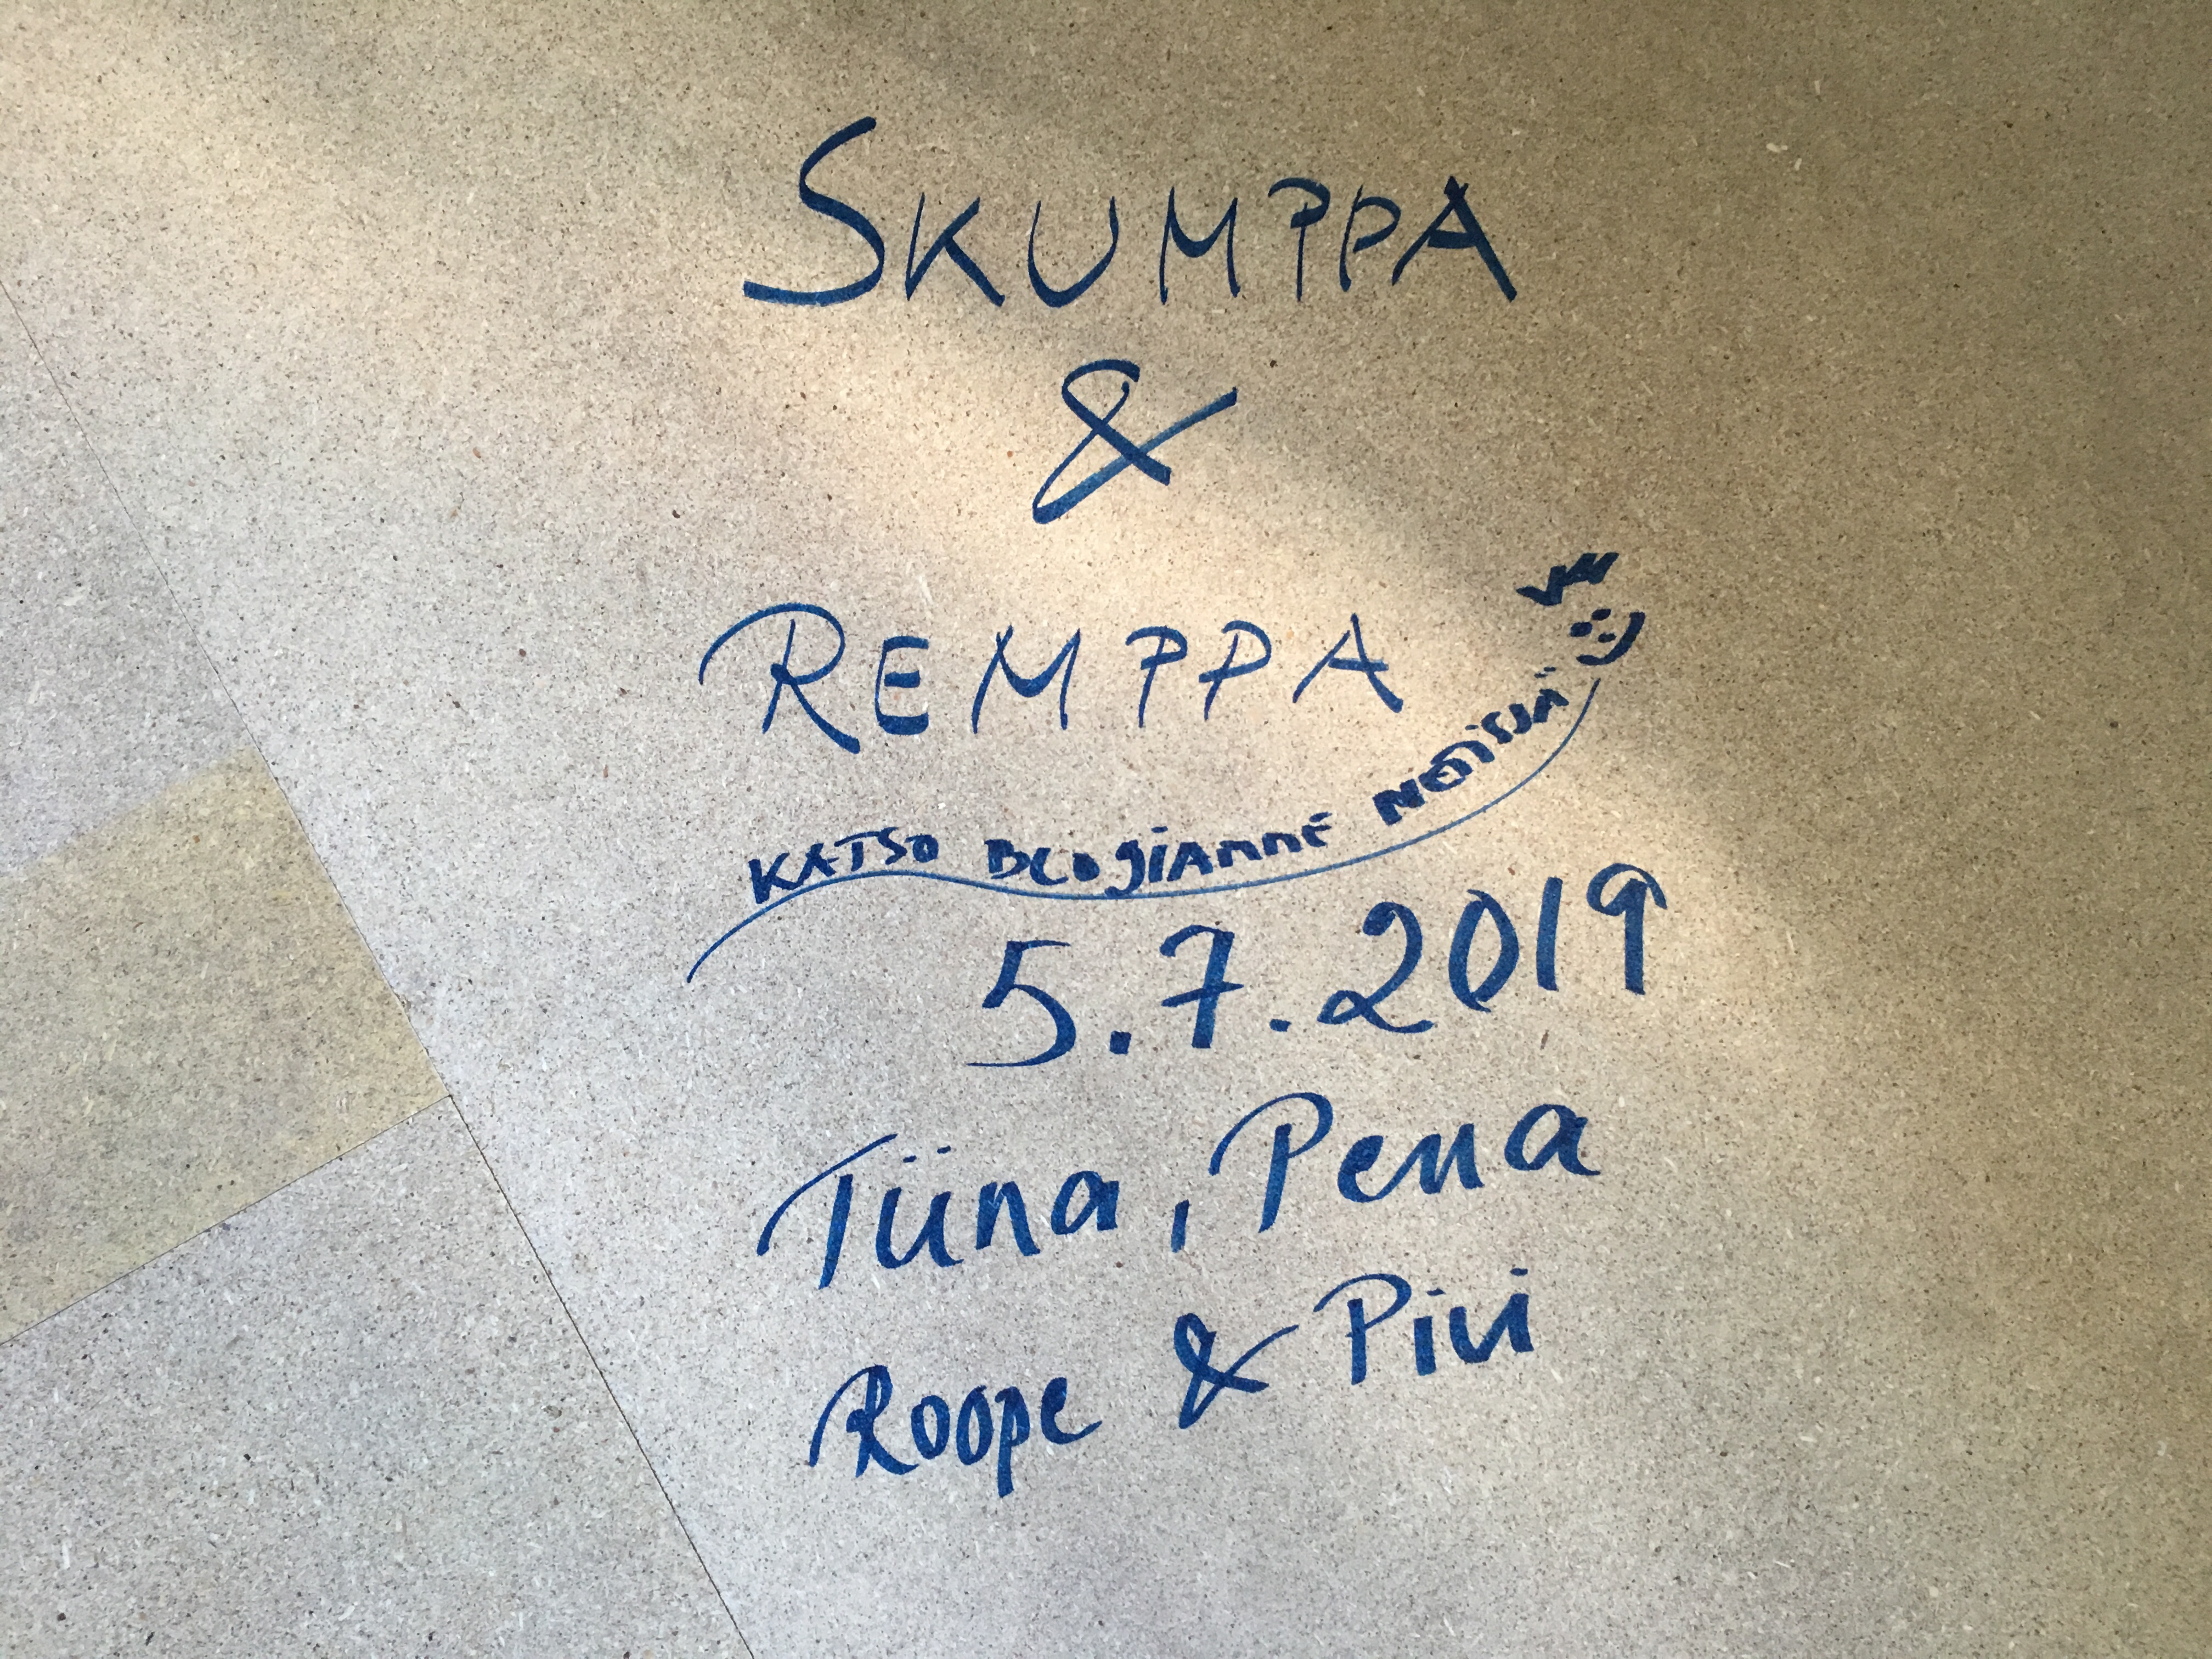 SKUMPPA
&
REMPPA
KATSO BLOGIAMME NETISSÄ :)
5.7.2019
Tiina, Pena
Roope & Pivi